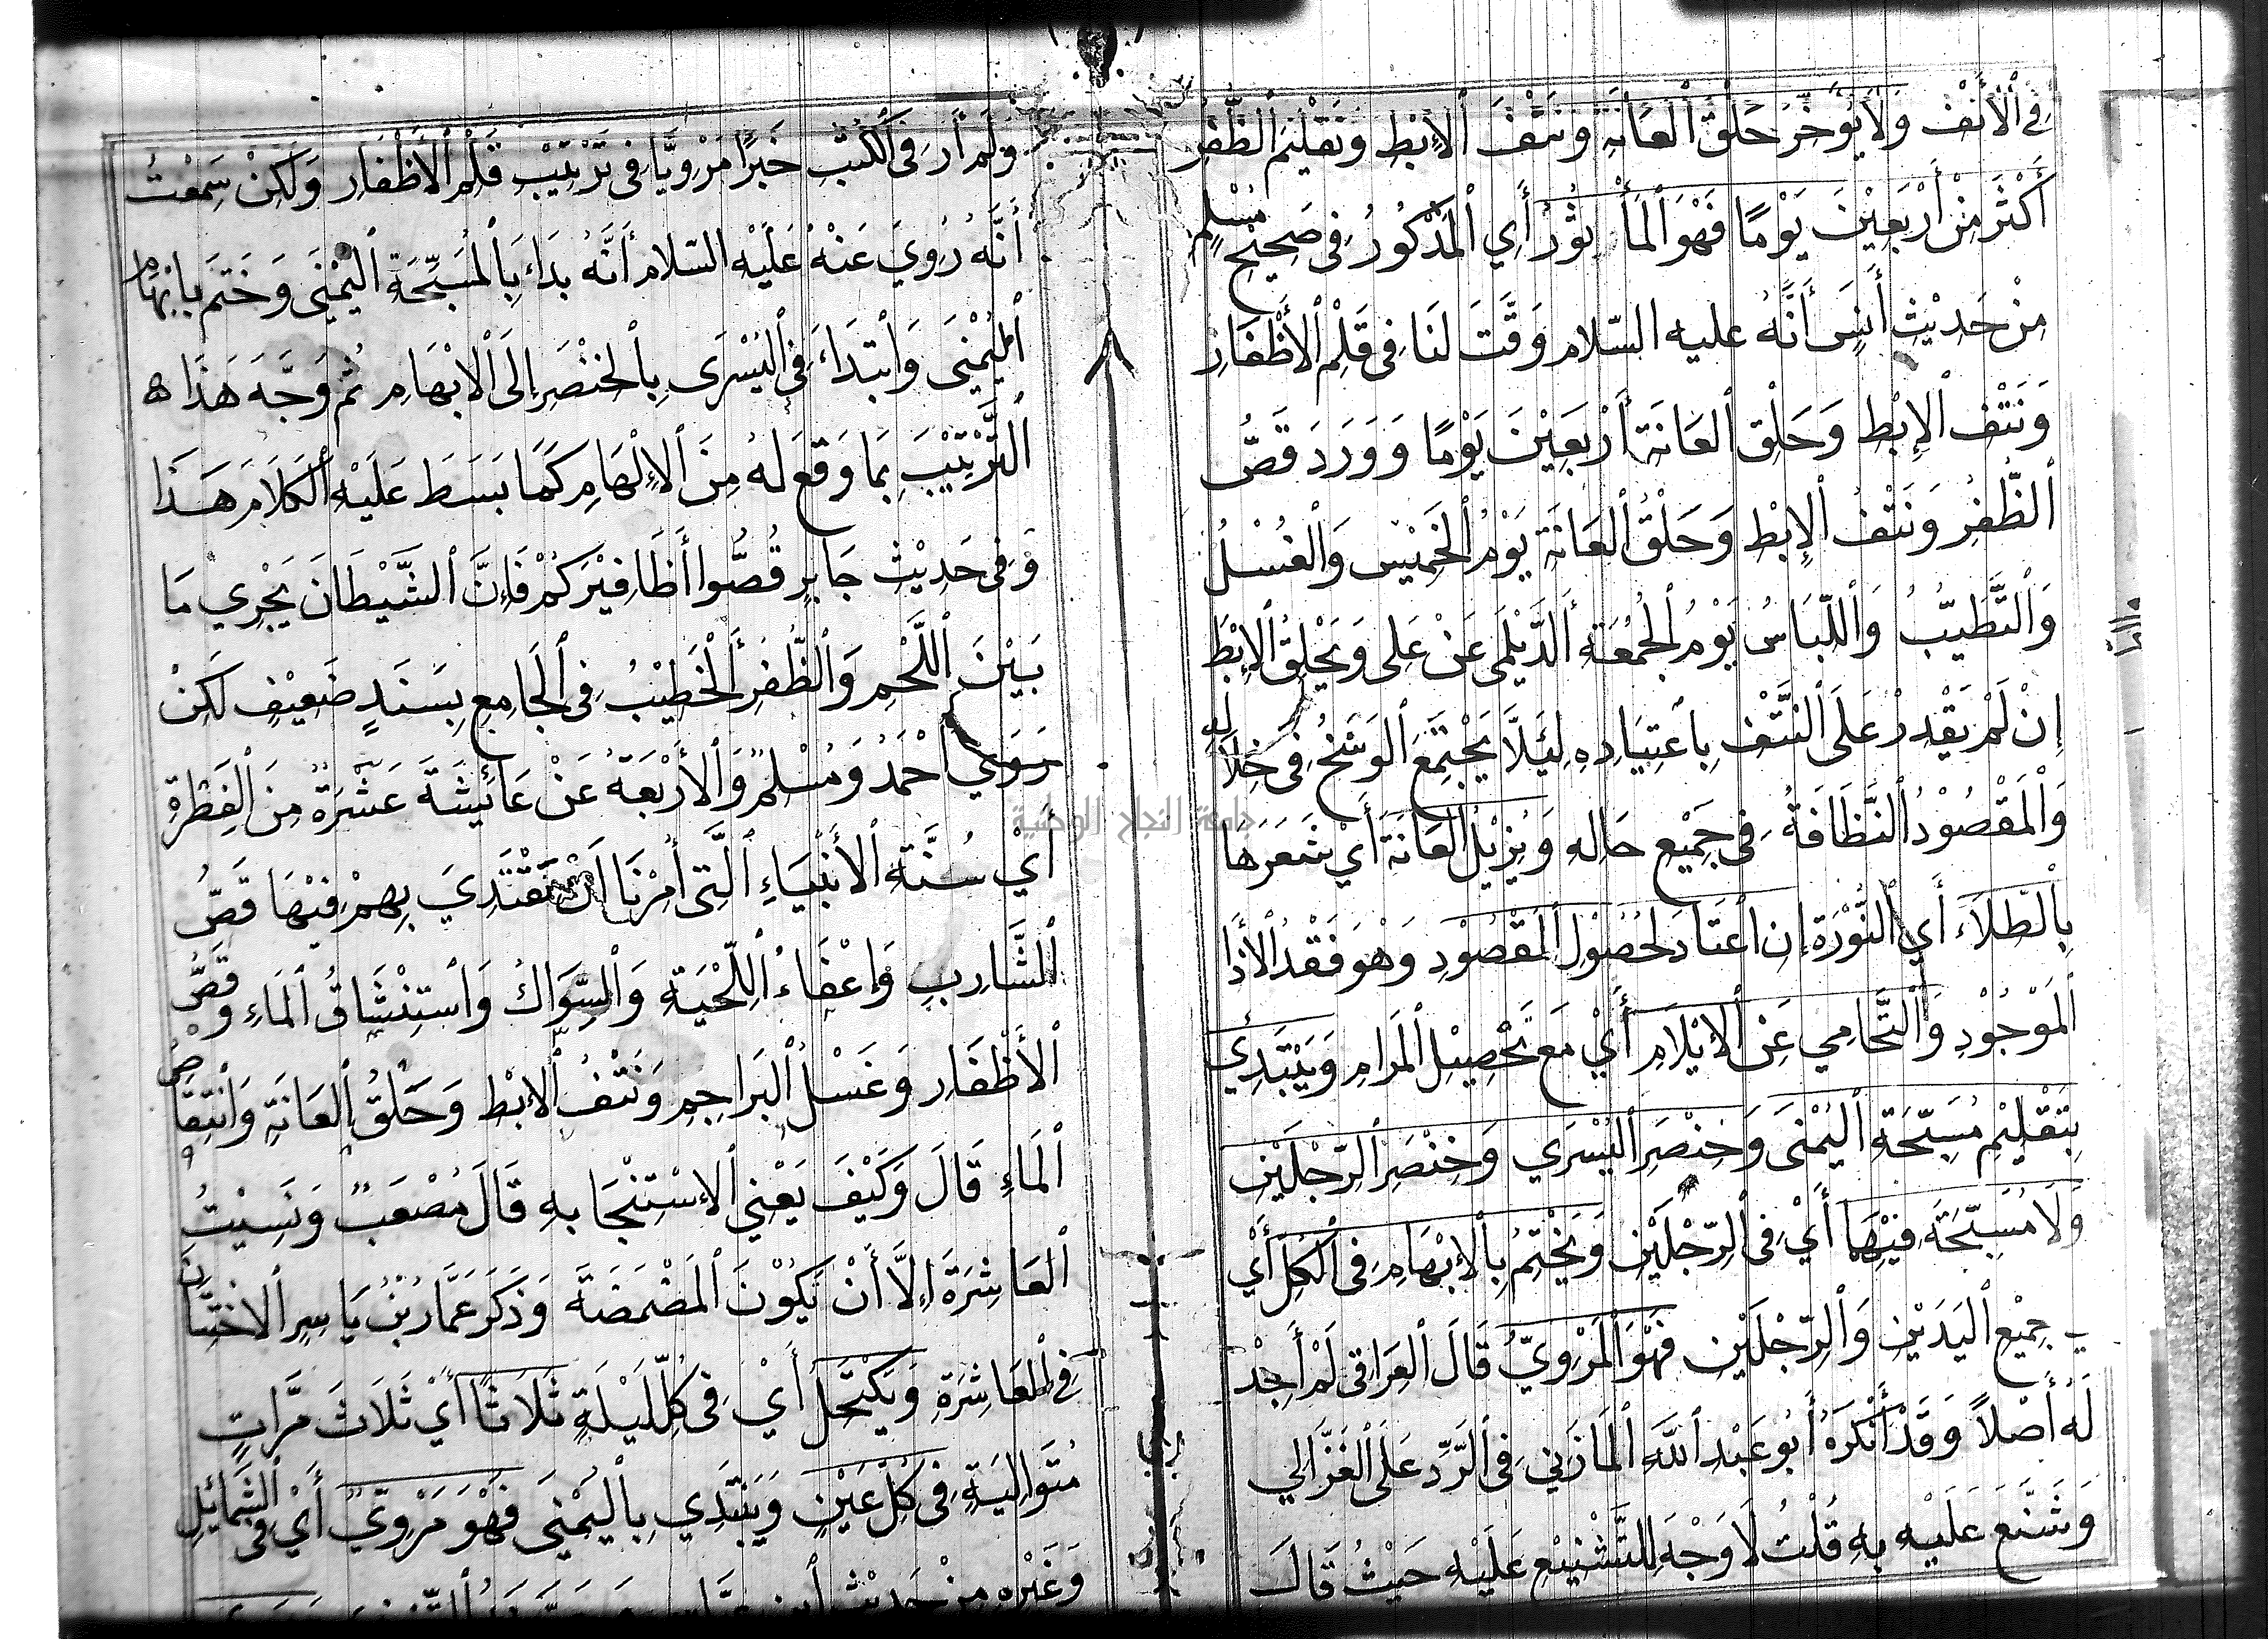 فِي ٱلْأَنْفِ وَلَا يُؤَخِّرُ حَلْقَ ٱلْعَانَةِ وَنَتْفَ ٱلْإِبْطِ وَتَقْلِيْمَ ٱلظُّفْرِ
أَكْثَرَ مِنْ أَرْبَعِيْنَ يَوْمًا فَهُوَ ٱلْمَأْثُوْرُ أَيِ ٱلْمَذْكُوْرُ فِى صَحِيْحِ مُسْلِمٍ
مِنْ حَدِيْثِ أَنَسٍ أَنَّهُ عليه السّلام وَقَّتَ لَنَا فِى قَلْمِ ٱلْأَظْفَارِ
وَنَتْفِ ٱلْإِبْطِ وَحَلْقِ ٱلعَانَةِ أَرْبَعِيْنَ يَوْمًا وَوَرَدَ قَصُّ
ٱلظُّفُرِ وَنَتْفُ ٱلْإِبْطِ وَحَلْقُ ٱلعَانَةِ يَوْمُ ٱلْخَمِيْسِ وَٱلْغُسْلُ
وَٱلتَّطَيُّبُ وَٱللِّبَاسُ يَوْمُ ٱلْجُمُعَةِ ٱلدَّيْلَمِى عَنْ عَلِى وَيَحْلِقُ ٱلْإِبْطَ
إِنْ لَمْ يَقْدِرْ عَلَى ٱلنَّتْفِ بِاعْتِيَادِهِ لِئَلَّا يَجْتَمِعَ ٱلوَسَخُ فِى خِلَالِهِ
وَٱلْمَقْصُوْدُ ٱلنَّظَافَةُ فِى جَمِيْعِ حَالِهِ وَيُزِيْلُ ٱلعَانَةَ أَيْ شَعَرَهَا
بِٱلطِّلَاءِ أَيِ ٱلنُّوْرَةِ إِنِ ٱعْتَادَ لِحُصُوْلِ ٱلمَقْصُوْدِ وَهُوَ فَقْدُ ٱلْأَذَا
ٱلْمَوْجُوْدِ وَٱلتَّحَامِي عَنِ ٱلْإِيْلَامِ أَيْ مَعَ تَحْصِيْلِ ٱلْمَرَامِ وَيَبْتَدِئُ
بِتَقْلِيْمِ مُسَبِّحَةِ ٱلْيُمْنَى وَخِنْصَرِ ٱلْيُسْرَي وَخِنْصَرِ ٱلرِّجْلَيْنِ
وَلَا مُسَبِّحَةَ فِيْهَا أَيْ فِى ٱلرِّجْلَيْنِ وَيَخْتِمُ بِٱلْإِبْهَامِ فِى ٱلْكُلِّ أَيْ
جَمِيْعِ ٱلْيَدَيْنِ وَٱلرِّجْلَيْنِ فَهُوَ ٱلْمَرْوِيُّ قَالَ ٱلعِرَاقِى لَمْ أَجِدْ
لَهُ أَصْلًا وَقَدْ أَنْكَرَهُ أَبُو عَبْدِ ٱللَّهِ ٱلْمَازَنِي فِى ٱلرَّدِّ عَلَى ٱلْغَزَالِي
وَشَنَّعَ عَلَيْهِ بِهِ قُلْتُ لَا وَجْهَ لِلتَّشْنِيْعِ عَلَيْهِ حَيْثُ قَالَ
وَلَمْ أَرَ فِى ٱلْكُتُبِ خَبَرًا مَرْوِيًّا فِى تَرْتِيْبِ قَلْمِ ٱلْأَظْفَارِ وَلَكِنْ سَمِعْتُ
أَنَّهُ رُوِيَ عَنْهُ عَلَيْهِ السّلام أَنَّهُ بَدَاءَ بِٱلْمُسَبِّحَةِ ٱلْيُمْنَى وَخَتَمَ بِإِبْهَامِ
ٱلْيُمْنَى وَٱبْتَدَاءَ فِى ٱلْيُسْرَى بِٱلْخِنْصَرِ إِلَى ٱلْاِبْهَامِ ثُمَّ وَجَّهَ هَذَا
ٱلتَّرْتِيْبَ بِمَا وَقَعَ لَهُ مِنَ ٱلْإِلْهَامِ كَمَا بَسَطَ عَلَيْهِ ٱلْكَلَامَ هَذَا
وَفِى حَدِيْثِ جَابِرٍ قُصُّوا أَظَافِيْرَكُمْ فَإِنَّ ٱلشَّيْطَانَ يَجْرِي مَا
بَيْنَ ٱللَّحْمِ وَٱلظُّفُرِ ٱلْخَطِيْبُ فِى ٱلْجَامِعِ بِسَنَدٍ ضَعِيْفٍ لَكِنْ
رَوَي أَحْمَدُ وَمُسْلِمٌ وَٱلْأَرْبَعَةُ عَنْ عَائِشَةَ عَشْرَةٌ مِنَ ٱلْفِطْرَةِ
أَيْ سُنَّةِ ٱلْأَنْبِيَاءِ ٱلَّتِى أُمِرْنَا أَنْ نَقْتَدِيَ بِهِمْ فِيْهَا قَصُّ
ٱلشَّارِبِ وَإِعْفَاءُ ٱللِّحْيَةِ وَٱلسِّوَاكُ وَٱسْتِنْشَاقُ ٱلْمَاءِ وَقَصُّ
ٱلْأَظْفَارِ وَغَسْلُ ٱلْبَرَاجِمِ وَنَتْفُ ٱلْإِبْطِ وَحَلْقُ ٱلعَانَةِ وَٱنْتِقَاصُ
ٱلْمَاءِ قَالَ وَكَيْفَ يَعْنِي ٱلْإِسْتِنْجَا بِهِ قَالَ مُصْعَبٌ وَنَسِيْتُ
ٱلعَاشِرَةَ إِلَّا أَنْ تَكُوْنَ ٱلْمَضْمَضَةَ وَذَكَرَ عَمَّارُ بْنُ يَاسِرٍ ٱلْاِخْتِتَانَ
فِى ٱلْعَاشِرَةِ وَيَكْتَحِلُ أَيْ فِى كُلِّ لَيْلَةٍ ثَلَاثًا أَيْ ثَلَاثَ مَرَّاتٍ
مُتَوَالِيَةٍ فِى كُلِّ عَيْنٍ وَيَبْتَدِي بِٱلْيُمْنَى فَهُوَ مَرْوِيٌّ أَيْ فِى ٱلشَّمَائِلِ
وَغَيْرِهِ مِنْ حَدِيْثِ
جامعة النجاح الوطنية